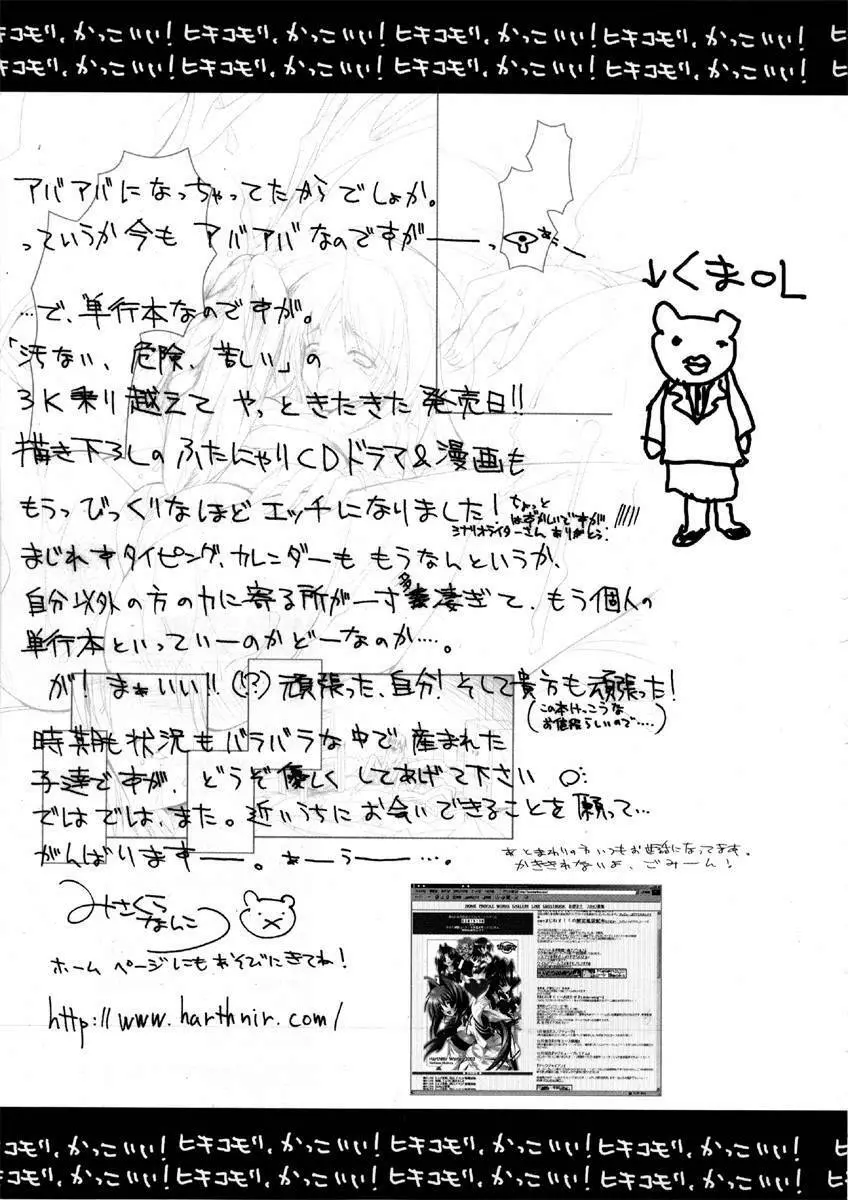 ヒキコモリ、かっこいい！ヒキコモリ、かっこいい！ヒキコモリ、かっこいい！ヒキコモリ、かっこいい！ ヒ
ヒキコモリ、かっこいい！ヒキコモリ、かっこいい！ヒキコモリ、かっこいい！ヒキコモリ、かっこいい！ ヒ
アバアバになっちゃってたからでしょか。
っていうか今も アバアバなのですがーーっ
↓くまOL
…で、単行本なのですが。
「汚ない、危険、苦しい」の
3K乗り越えて やっときたきた発売日!!
描き下ろしの ふたにゃりCDドラマ&漫画も
もうっびっくりなほど エッチになりました！
ちょっと
はずかしいですが
シナリオライターさん ありがとう！
まじれすタイピング、カレンダーも もうなんというか、
自分以外の方の力に寄る所が一寸多凄ぎて、もう個人の
単行本といっていーのかどーなのか…。
が！ まぁいい!!(!?)頑張った、自分！そして貴方も頑張った！
(この本けっこうな
お値段らしいので…)
時期も状況もバラバラな中で産まれた
子達ですが、どうぞ優しく してあげて下さい
ではでは、また。近いうちに お会いできることを願って…
がんばりますーー。あーうーー…。
あとまわりの方いつもお世話になってます。
かききれないよ、ごみーん！
みさくら
なんこつ
ホームページにもあそびにきてね！
http://www.harthnir.com/
ヒキコモリ、かっこいい！ヒキコモリ、かっこいい！ヒキコモリ、かっこいい！ヒキコモリ、かっこいい！ ヒ
ヒキコモリ、かっこいい！ヒキコモリ、かっこいい！ヒキコモリ、かっこいい！ヒキコモリ、かっこいい！ ヒ